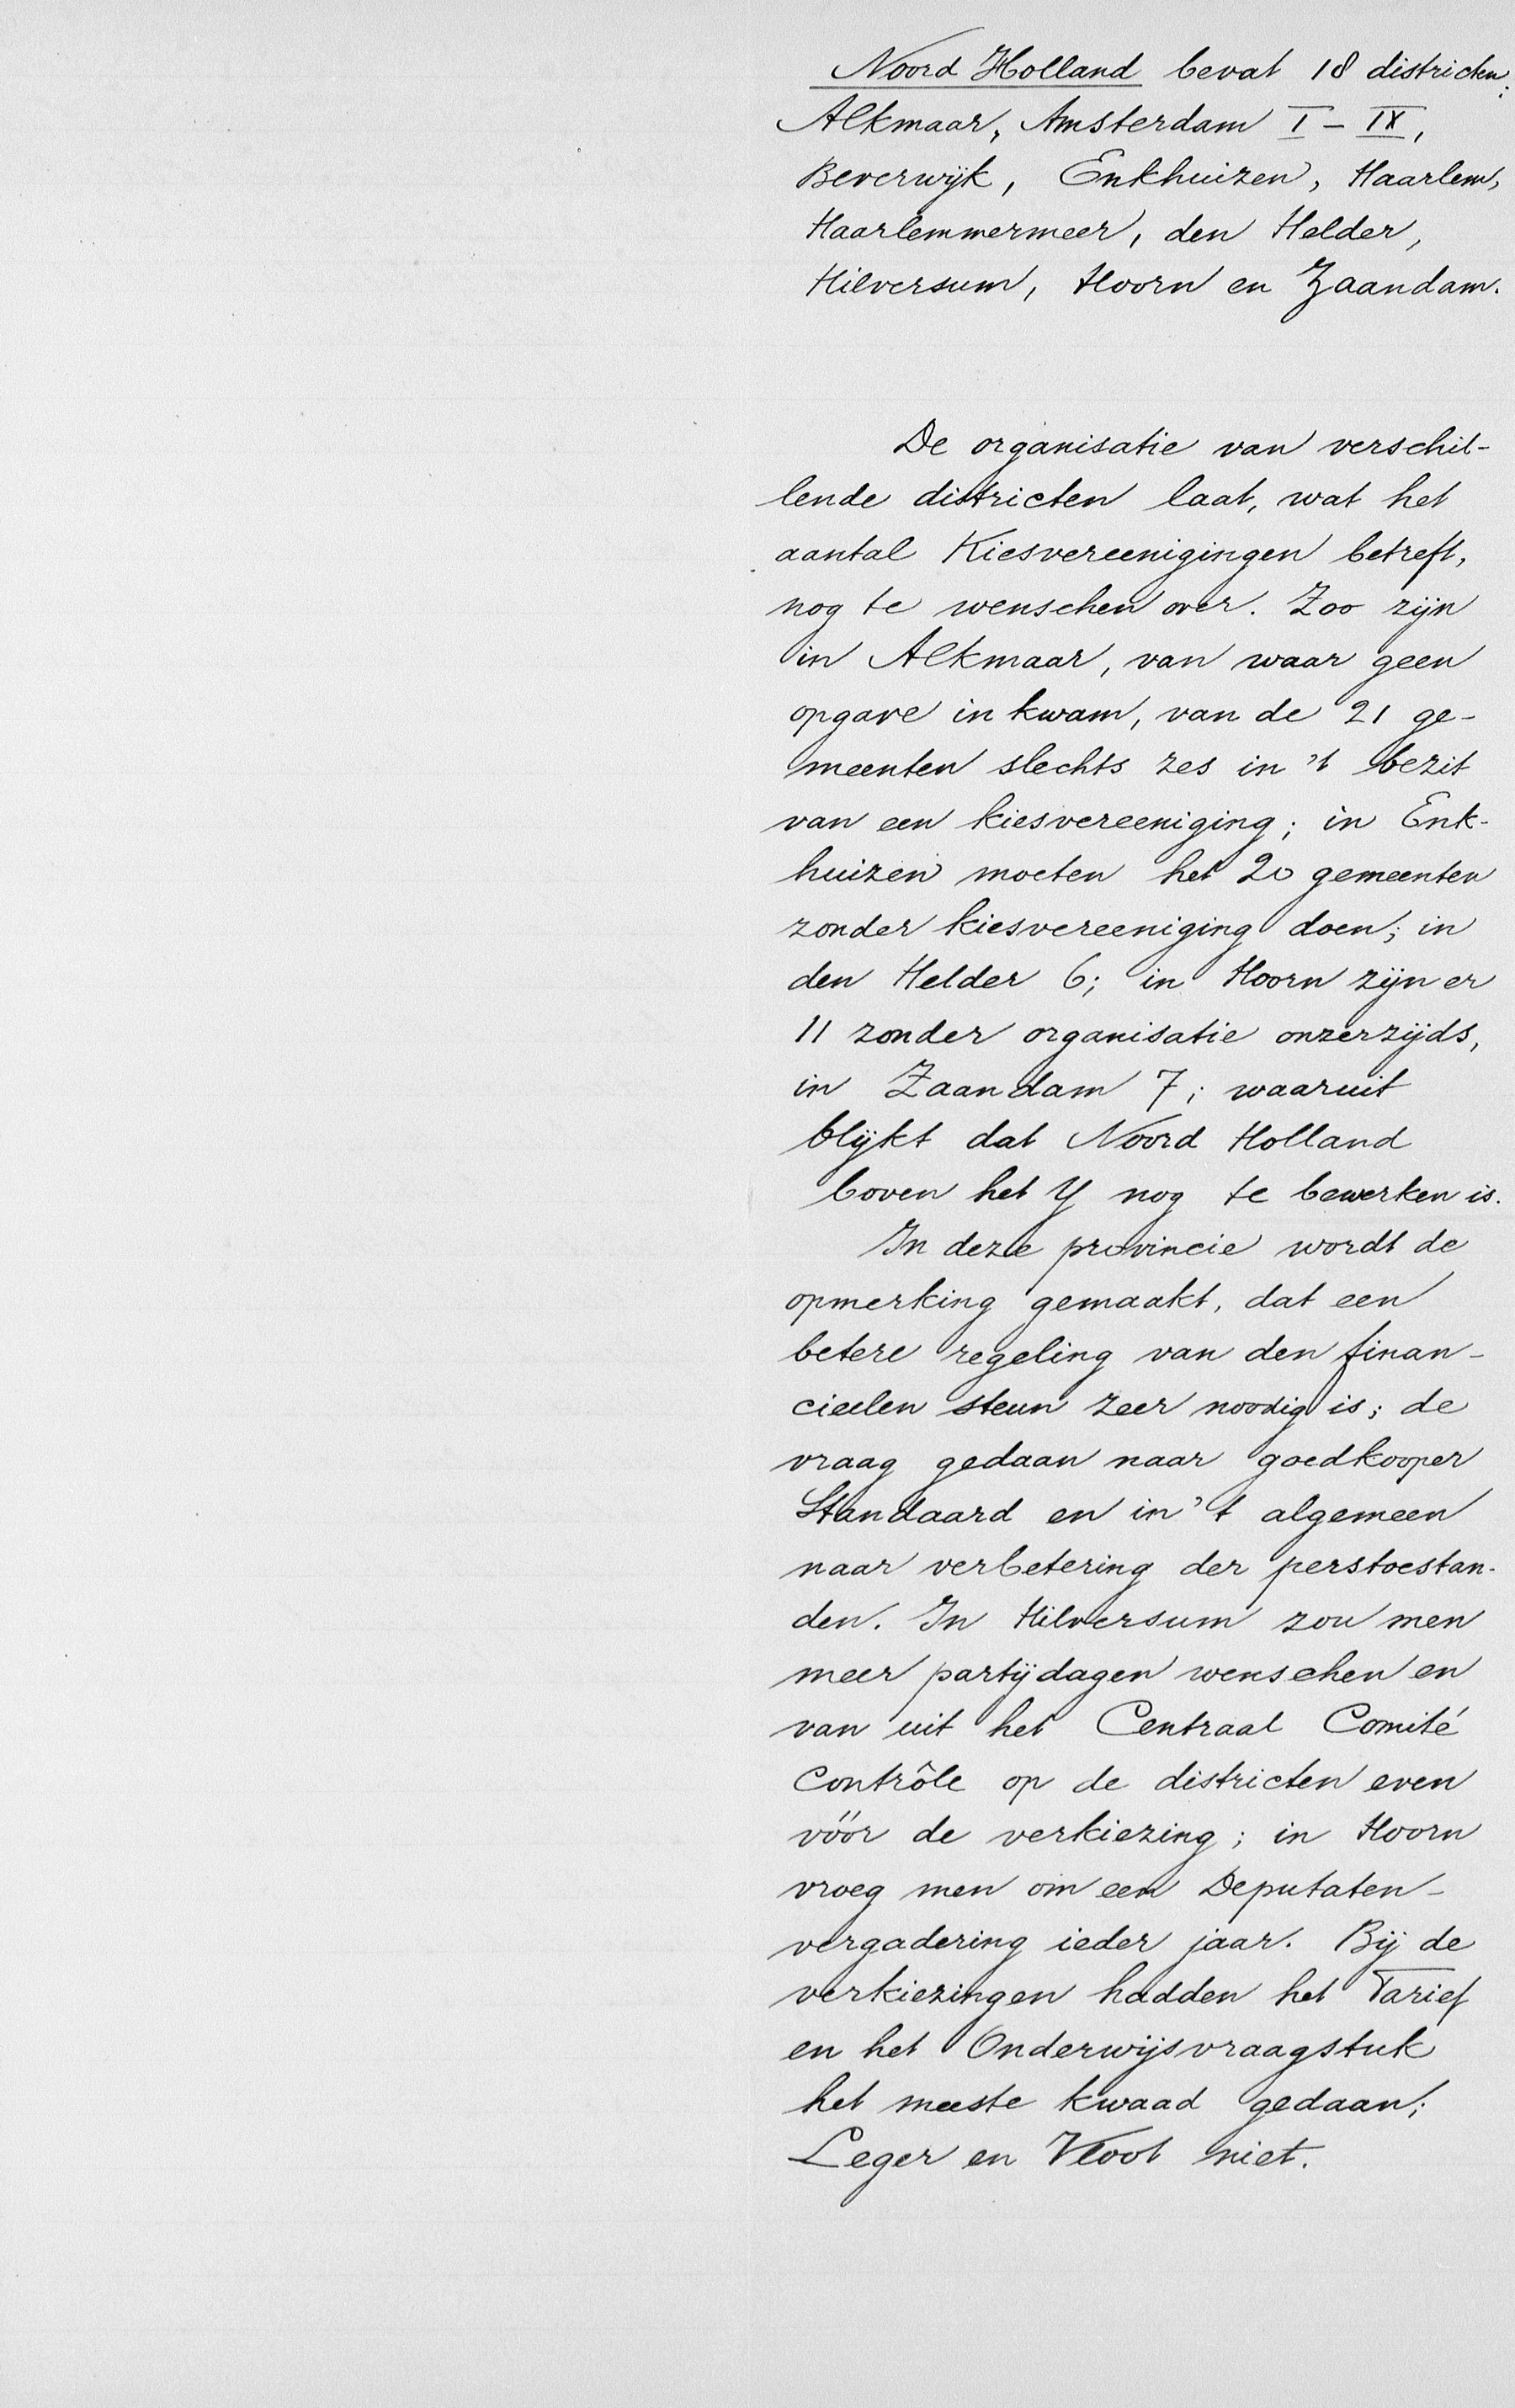 Noord Holland bevat 18 districten:
Alkmaar, Amsterdam I – IX,
Beverwijk, Enkhuizen, Haarlem,
Haarlemmermeer, den Helder,
Hilversum, Hoorn en Zaandam.
De organisatie van verschil-
lende districten laat, wat het
aantal Kiesvereenigingen betreft,
nog te wenschen over. Zoo zijn
in Alkmaar, van waar geen
opgave in kwam, van de 21 ge-
meenten slechts zes in 't bezit
van een kiesvereeniging; in Enk-
huizen moeten het 20 gemeenten
zonder kiesvereeniging doen; in
den Helder 6; in Hoorn zijn er
11 zonder organisatie onzerzijds,
in Zaandam 7; waaruit
blijkt dat Noord Holland
boven het Y nog te bewerken is.
In deze provincie wordt de
opmerking gemaakt, dat een
betere regeling van den finan-
cieelen steun zeer noodig is; de
vraag gedaan naar goedkooper
Standaard en in 't algemeen
naar verbetering der perstoestan-
den. In Hilversum zou men
meer partijdagen wenschen en
van uit het Centraal Comité
Contrôle op de districten even
vóór de verkiezing; in Hoorn
vroeg men om een Deputaten-
vergadering ieder jaar. Bij de
verkiezingen hadden het Tarief
en het Onderwijsvraagstuk
het meeste kwaad gedaan;
Leger en Vloot niet.